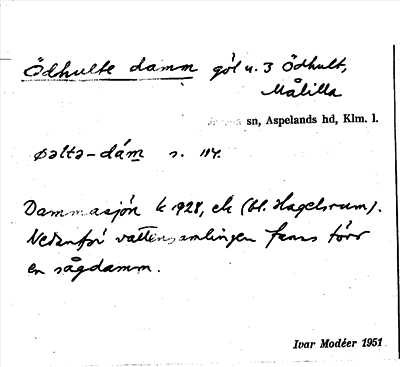 Ödhulte damm göl u. 3 Ödhult,
Målilla
sn, Aspelands hd, Klm. l.
øəltə-dám s. 114.
Dammasjön k 1928, ek (bl. Hagelsrum).
Nedanför vattensamlingen fanns förr
en sågdamm.
Ivar Modéer 1951